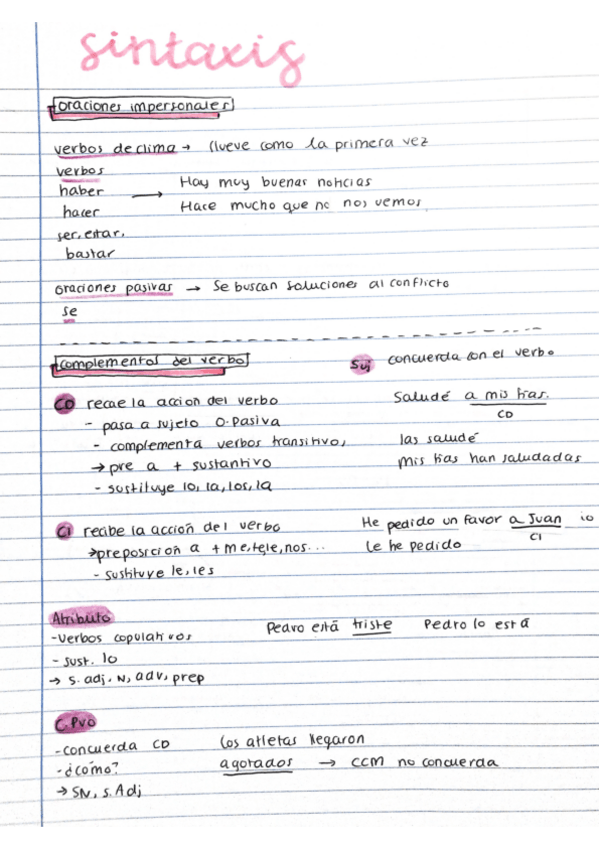 sintaxis
oraciones impersonales
verbos de clima → llueve como la primera vez
verbos
haber → Hay muy buenas noticias
hacer Hace mucho que no nos vemos
ser, estar,
bastar
oraciones pasivas → Se buscan soluciones al conflicto
se
complementos del verbo
Suj concuerda con el verbo
CD recae la accion del verbo Saludé a mis tias.
CD
- pasa a sujeto O. Pasiva
- complementa verbos transitivos las saludé
→ pre a + sustantivo mis tias han saludadas
- sustituye lo, la, los, la
CI recibe la acción del verbo He pedido un favor a Juan io
CI
→ preposicion a + me, te, le, nos... Le he pedido
- sustituye le, les
Atributo
- Verbos copulativos Pedro está triste Pedro lo está
- sust. lo
→ s. adj. N, adv, prep
C. Pvo
- concuerda CD Los atletas llegaron
- ¿cómo? agotados → CCM no concuerda
→ SN, s. Adj